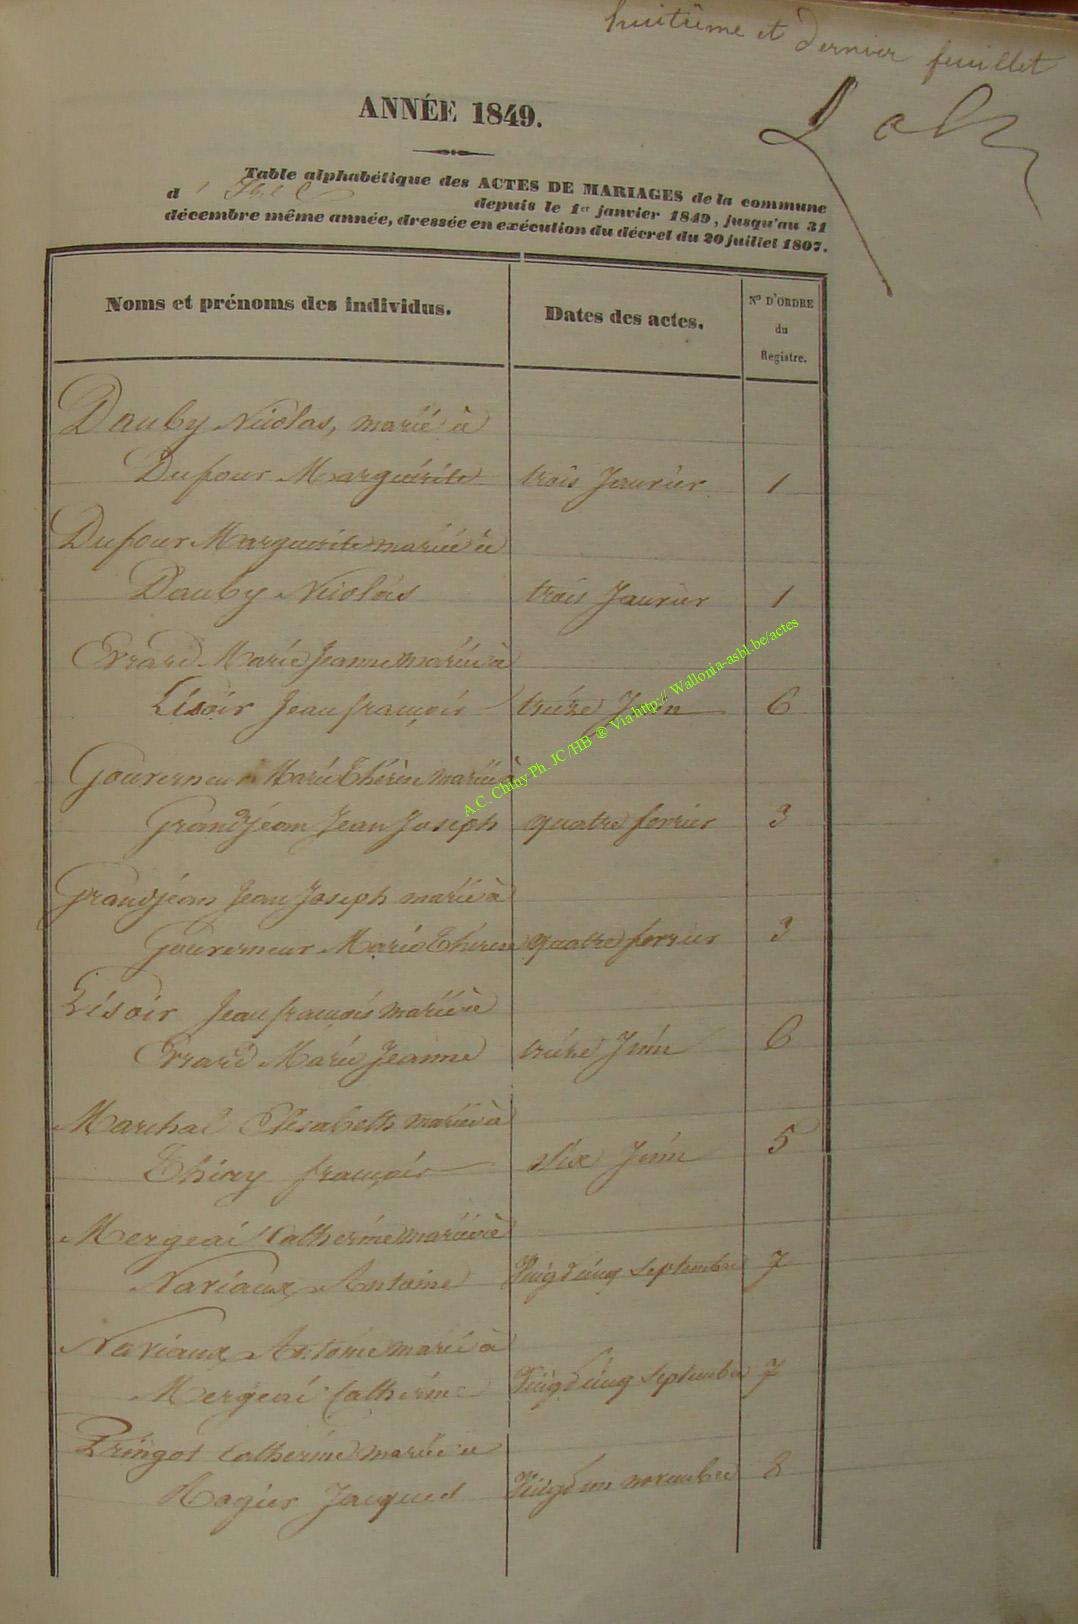 huitième et dernier feuillet
ANNÉE 1849.
Table alphabétique des ACTES DE MARIAGES de la commune
d' depuis le 1er janvier 1849, jusqu'au 31
décembre même année, dressée en exécution du décret du 20 juillet 1807.
Noms et prénoms des individus. Dates des actes. No D'ORDRE
du
Registre.
Dauby Nicolas, marié à
Dufour Marguérite trois Janvier 1
Dufour Marguerite mariée à
Dauby Nicolas trois Janvier 1
Errard Marie Jeanne mariée à
Lisoir Jean françois treize Juin 6
Gouverneur Marie Thérèse mariée à
Grandjean Jean Joseph quatre fevrier 3
Grandjean Jean Joseph marié à
Gouverneur Marie Thérèse quatre fevrier 3
Lisoir Jean françois marié à
Errard Marie Jeanne treize Juin 6
Marchal Elisabeth mariée à
Thiry françois six Juin 5
Mergeai Catherine mariée à
Naviaux Antoine septembre 7
Naviaux Antoine marié à
Mergeai Catherine septembre 7
Pringot Catherine mariée à
Rogier Jacques novembre 8
A.C. Chiny Ph. JC/HB ® Via http:// Wallonia-asbl.be/actes